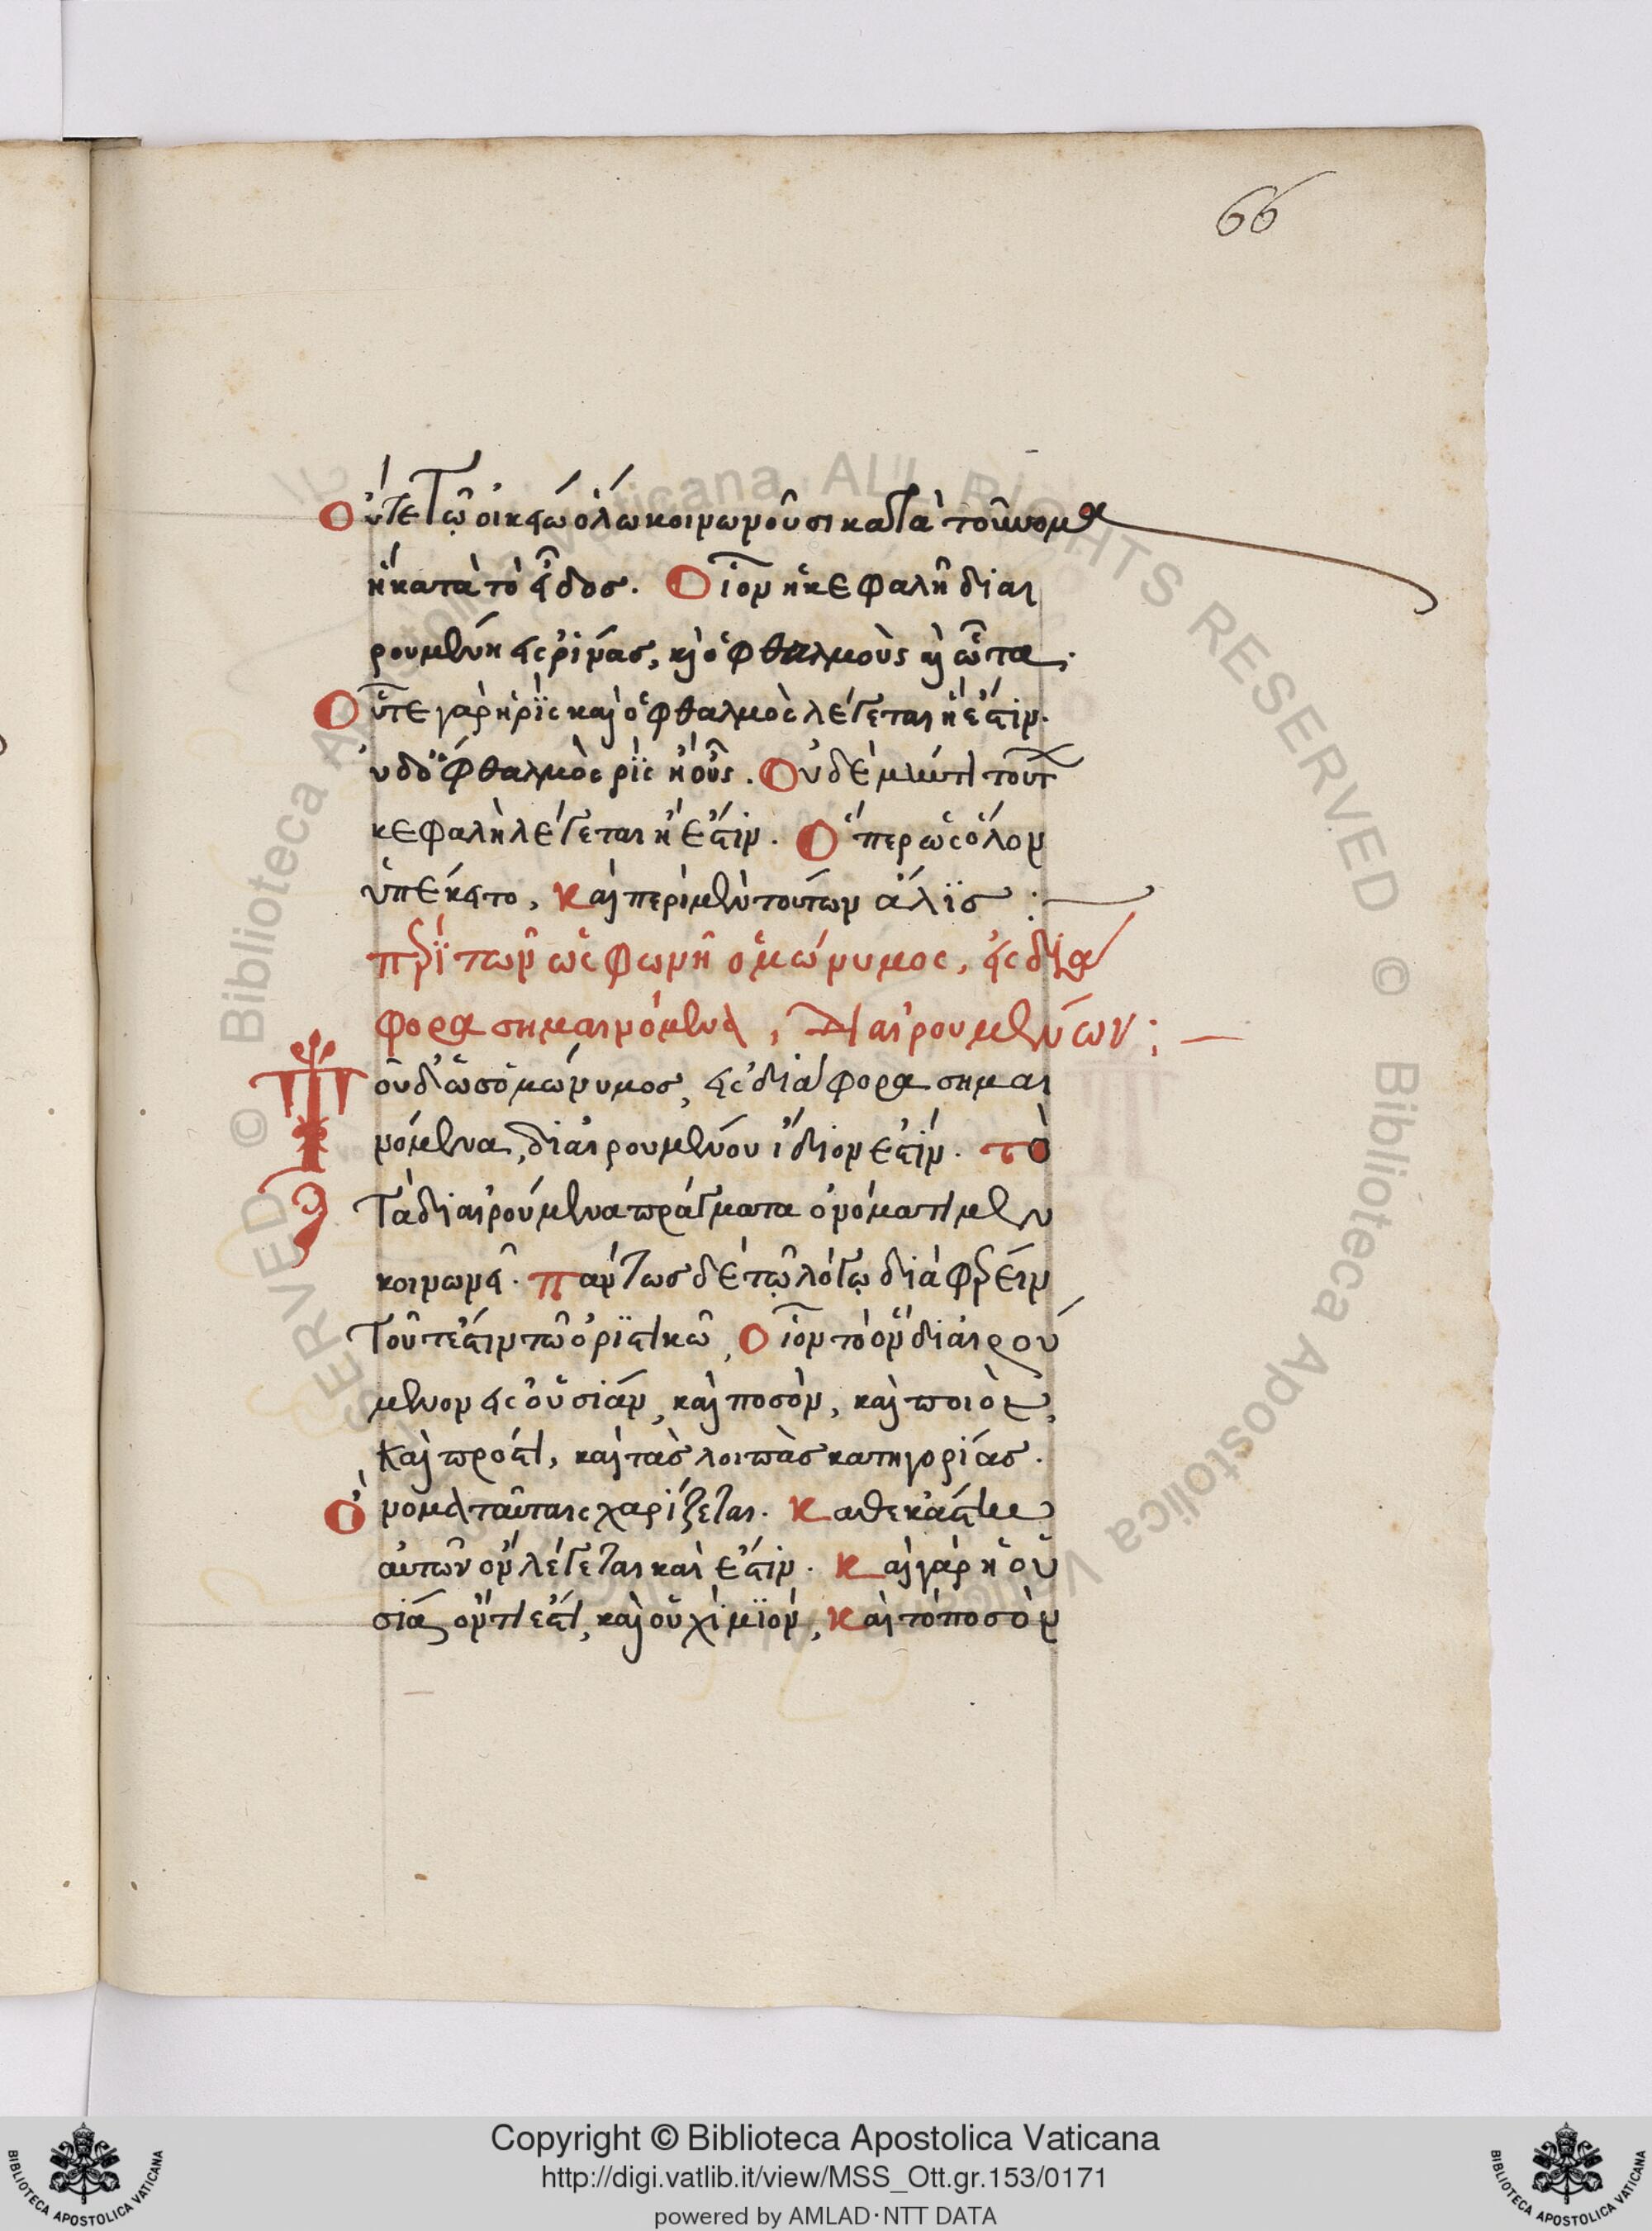 66
Οὔτε τῷ οἰκείω ὅλω κοινωνοῦσι κατὰ τοὔνομα
ἢ κατὰ τὸ εἶδος. Οἷον ἡ κεφαλὴ διαι
ρουμένη εἰς ῥίνας, καὶ ὀφθαλμοὺς καὶ ὦτα.
Οὔτε γὰρ ἡ ρὶς καὶ ὀφθαλμὸς λέγεται ἢ ἔστιν.
οὐδ' ὀφθαλμὸς ρὶς ἢ οὖς. Οὐδὲ μὴν τὶ τούτ
κεφαλὴ λέγεται ἢ ἔστιν. Ὅπερ ὡς ὅλον
ὑπέκειτο, Καὶ περὶ μὲν τούτων ἅλις :
περὶ τῶν ὡς φωνὴ ὁμώνυμος, εἰς διά
φορα σημαινόμενα, Διαιρουμένων :
Τοῦ δὲ ὡς ὁμώνυμος, εἰς διάφορα σημαι
νόμενα, διαιρουμένου ἴδιον ἐστίν. τὸ
Τὰ διαιρούμενα πράγματα ὀνόματι μὲν
κοινωνεῖ. πάντως δὲ τῷ λόγῳ διαφέρειν
Τοῦτ' ἔστιν τῶ ὁριστικῶ, Οἷον τὸ ὂν διαιρού
μενον εἰς οὐσίαν, καὶ ποσὸν, καὶ ποιὸν,
Καὶ πρόστι, καὶ τὰς λοιπὰς κατηγορίας.
Ὄνομα ταύταις χαρίζεται. Καθ' εκάστην
αὐτῶν ὂν λέγεται καὶ ἔστιν. Καὶ γὰρ ἡ οὐ
σία ὄν τί ἐστι, καὶ οὐχὶ μὴ ὂν, Καὶ τὸ ποσὸν
Copyright © Biblioteca Apostolica Vaticana
http://digi.vatlib.it/view/MSS_Ott.gr.153/0171
powered by AMLAD·NTT DATA
BIBLIOTECA APOSTOLICA VATICANA
BIBLIOTECA APOSTOLICA VATICANA
© Biblioteca Apostolica Vaticana ALL RIGHTS RESERVED © Biblioteca Apostolica Vaticana ALL RIGHTS RESERVED